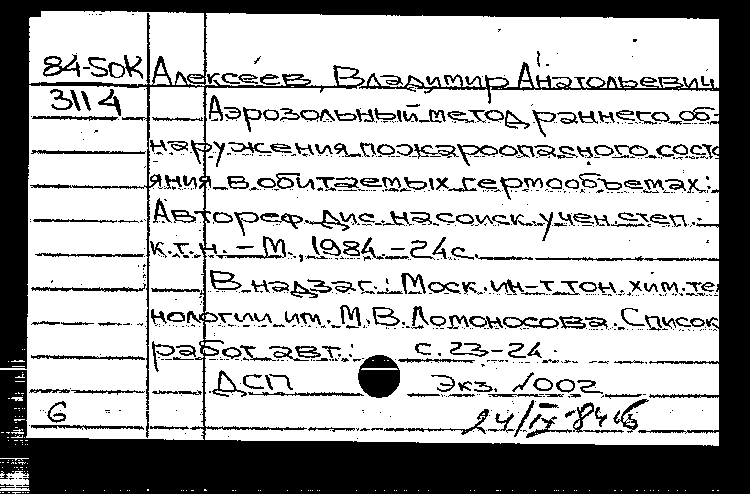 84-50К Алексеев, Владимир Анатольевич
3114 Аэрозольный метод раннего об-
наружения пожароопасного состо
яния в обитаемых гермообъемах:
Автореф. дис. на соиск. учен. степ.
к.т.н. – М., 1984. – 24 с.
В надзаг.: Моск. ин-т тон. хим. те
нологии им. М.В. Ломоносова. Список
работ авт.: с. 23–24.
ДСП Экз. №002
6 24/IX-84